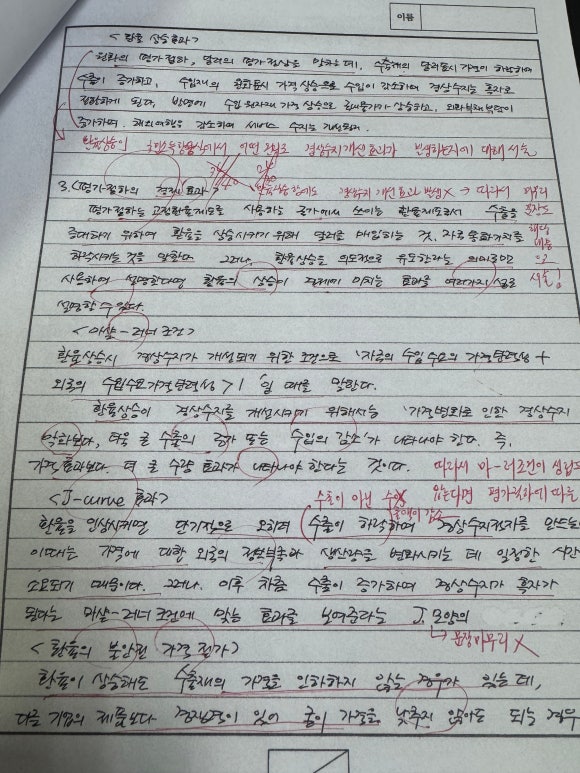 이름
<환율 상승효과>
원화의 평가절하, 달러의 평가절상을 말하는데, 수출재의 달러표시 가격이 하락하여
수출이 증가하고, 수입재의 원화표시 가격상승으로 수입이 감소하여 경상수지는 흑자로
전환하게 된다. 반면에 수입 원자재 가격 상승으로 국내물가가 상승하고, 외화부채부담이
증가하며, 해외여행은 감소하여 서비스 수지는 개선된다.
환율상승이 어떤 경로로 경상수지개선효과가 발생하는지에 대해 서술
3. <평가절하의 경제효과>
환율상승함에도 경상수지 개선효과 발생X → 따라서 마무리
평가절하는 고정환율제도를 사용하는 국가에서 쓰이는 환율제도로서 수출을
증대하기 위하여 환율을 상승시키기 위해 달러를 매입하는 것, 자국통화가치를
해당
하락시키는 것을 말한다. 그러나, 환율상승을 의도적으로 유도한다는 의미로만
내용
사용하여 설명한다면 환율의 상승이 경제에 미치는 효과를 여러가지로
서술!
설명할 수 있다.
<마샬-러너 조건>
환율상승시 경상수지가 개선되기 위한 조건으로 '자국의 수입수요의 가격탄력성 +
외국의 수입수요가격탄력성 > 1' 일 때를 말한다.
환율상승이 경상수지를 개선시키기 위해서는 '가격변화로 인한 경상수지
악화보다, 더욱 큰 수출의 증가 또는 수입의 감소'가 나타나야 한다. 즉,
가격효과보다 더 큰 수량 효과가 나타나야 한다는 것이다.
따라서 마-러조건이 성립되
<J-curve 효과>
수출이 아닌
않는다면 평가절하에 따른
환율을 인상시키면 단기적으로 오히려 수출이 하락하여 경상수지적자를 만드는
이때는 가격에 대한 외국의 정보부족과 생산량을 변화시키는 데 일정한 시간
소요되기 때문이다. 그러나, 이후 차츰 수출이 증가하여 경상수지가 흑자가
된다는 마샬-러너 조건에 맞는 효과를 보여준다는 J 모양의
↳ 문장마무리 X
<환율의 불완전 가격 전가>
환율이 상승해도 수출재의 가격을 인하하지 않는 경우가 있는데,
다른 기업의 제품보다 경쟁력이 있어 굳이 가격을 낮추지 않아도 되는 경우